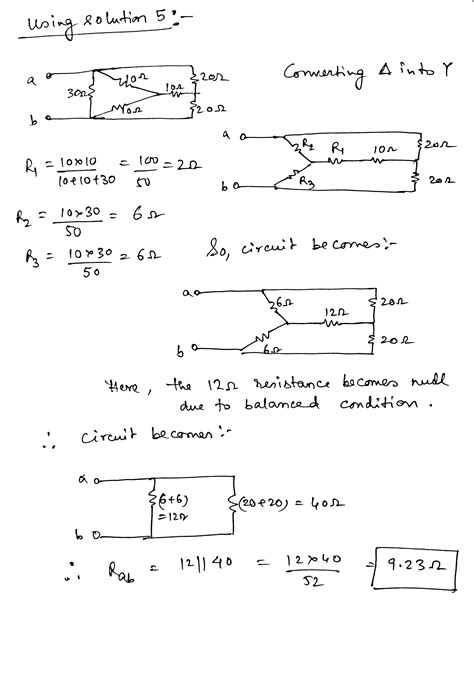 Using solution 5:-
a
b
30Ω
10Ω
10Ω
10Ω
20Ω
20Ω
Converting Δ into Y
R₁ = 10×10 / 10+10+30 = 100 / 50 = 2Ω
R₂ = 10×30 / 50 = 6Ω
R₃ = 10×30 / 50 = 6Ω
a
b
R₂
R₁
10Ω
R₃
20Ω
20Ω
So, circuit becomes:-
a
b
6Ω
12Ω
6Ω
20Ω
20Ω
Here, the 12Ω resistance becomes null
due to balanced condition.
∴ circuit becomes:-
a
b
(6+6)
=12Ω
(20+20) = 40Ω
∴ Rab = 12||40 = 12×40 / 52 = 9.23Ω